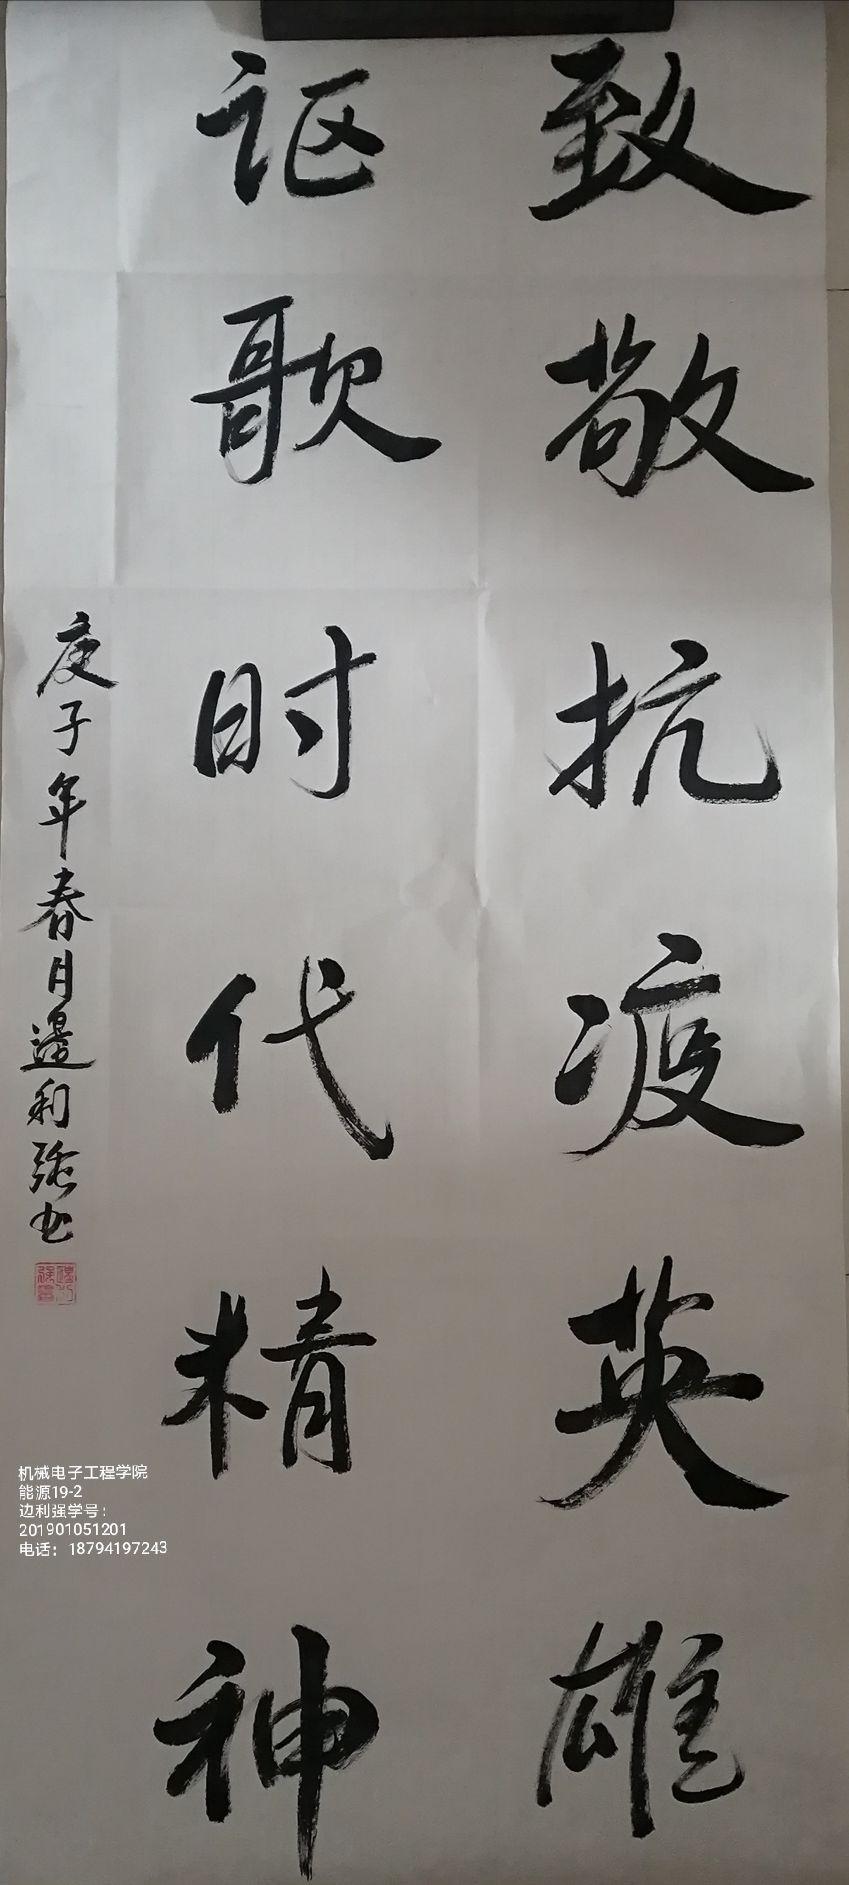 致敬抗疫英雄
讴歌时代精神
庚子年春月邊利强书
机械电子工程学院
能源19-2
边利强学号：
201901051201
电话：18794197243